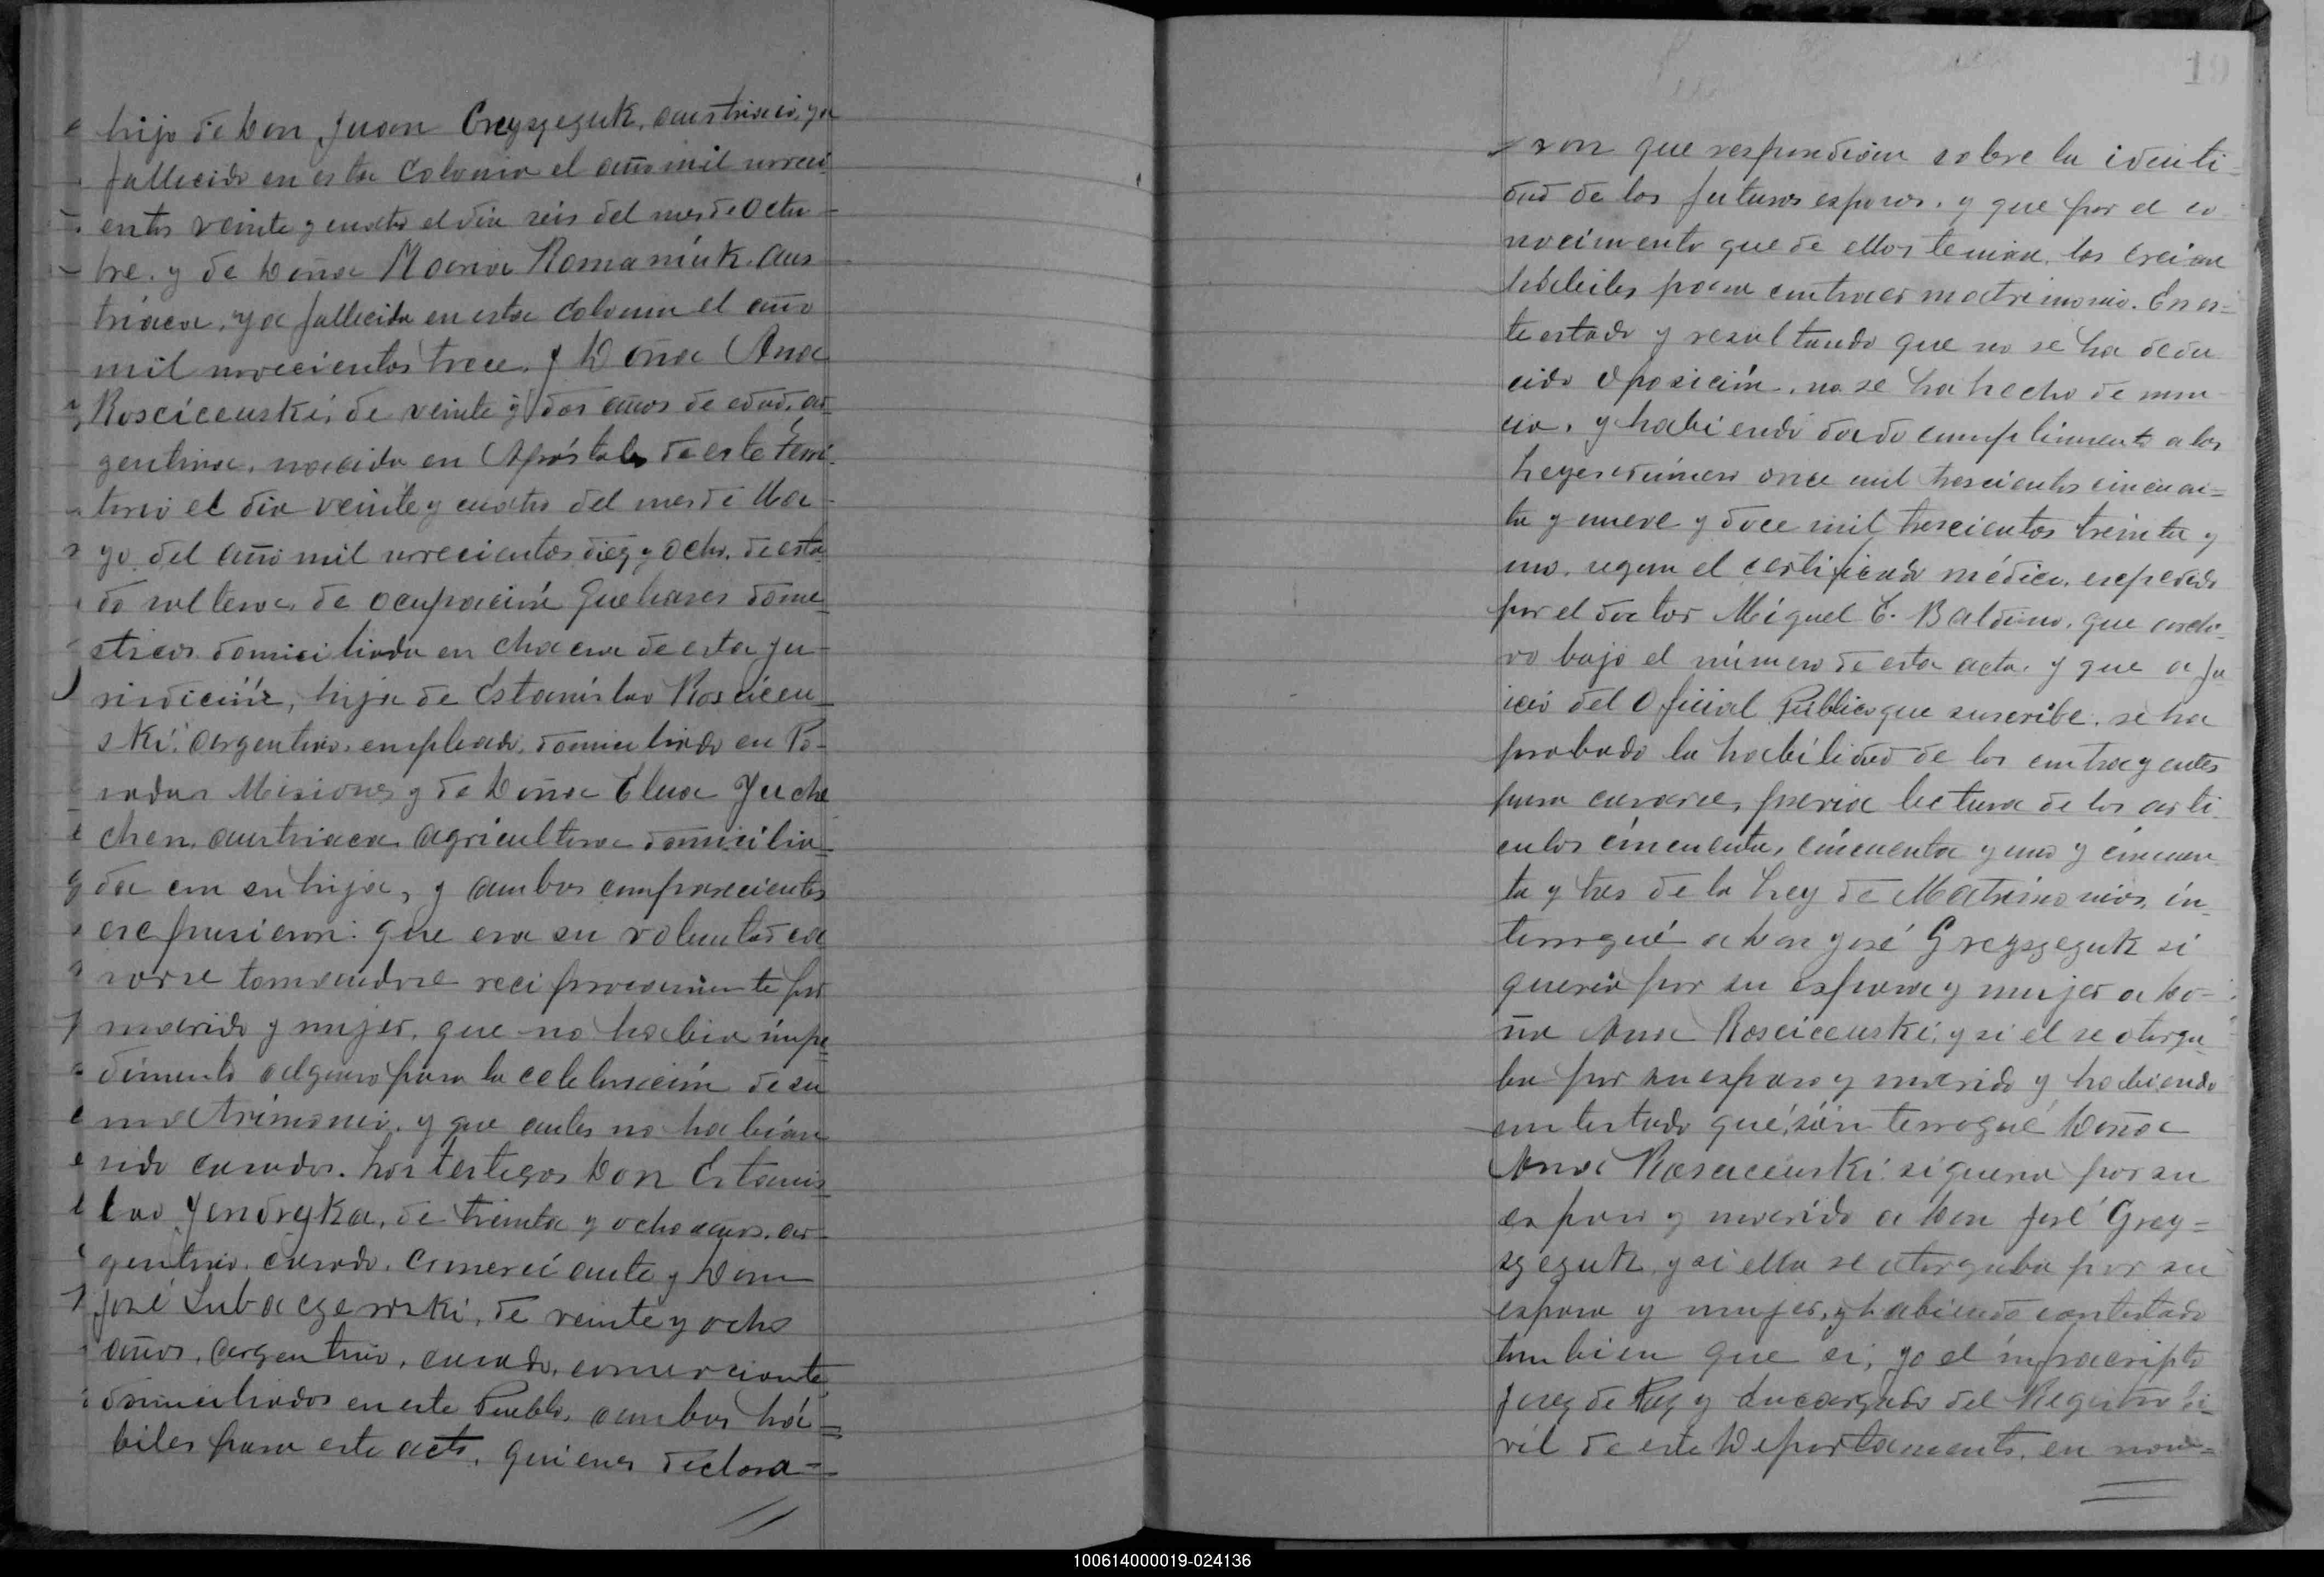 hijo de Don Juan Greyszeguk, austriaco, ya
fallecido en esta Colonia el año mil noveci
entos veinte y cuatro el dia seis del mes de Octu
bre. y de Doña Maria Romaniuk. aus
triaca, ya fallecida en esta Colonia el año
mil novecientos trece. y Doña Ana
Roscicenski, de veinte y dos años de edad, ar
gentina, nacida en Apóstoles de este Terri
torio el dia veinte y cuatro del mes de Ma
yo del año mil novecientos diez y ocho, de esta
do soltera, de ocupación Quehaceres dome
sticos domiciliada en chacra de esta ju
risdicción, hija de Estanislao Roscicen
ski. argentino, empleado, domiciliado en Po-
sadas Misiones y de Doña Elena Juche
chen, austriaca agricultora domicilia
da con su hija, y ambos comparecientes
expusieron: que era su voluntad ca
sarse tomandose reciprocamente por
marido y mujer, que no habia impe
dimento alguno para la celebración de su
matrimonio, y que antes no habian
sido casados. Los testigos Don Estanis
lao Jendryka, de treinta y ocho años, ar
gentino, casado, comerciante y Don
José Lubaczewski, de veinte y ocho
años, argentino, casado, comerciante,
domiciliados en este Pueblo, ambos há=
biles para este acto, quienes declara=
19
ron que respondian sobre la identi
dad de los futuros esposos, y que por el co
nocimiento que de ellos tenian, los creian
hábiles para contraer matrimonio. En es=
te estado y resultando que no se ha dedu
cido oposición, no se ha hecho denun
cia, y habiendo dado cumplimiento a las
Leyes número once mil trescientos cincuen=
ta y nueve y doce mil trescientos treinta y
uno, segun el certificado médico, expedido
por el doctor Miguel C. Baldino, que archi
vo bajo el número de esta acta, y que a ju
icio del Oficial Público que suscribe, se ha
probado la habilidad de los contrayentes
para casarse, previa lectura de los arti
culos cincuenta, cincuenta y uno y cincuen
ta y tres de la Ley de Matrimonios, in
terrogué a Don José Greyszeguk si
queria por su esposa y mujer a Do-
ña Ana Roscicenski, y si el se otorga
ba por su esposo y marido y habiendo
contestado que si, interrogué Doña
Ana Roscicenski si queria por su
esposo y marido a Don José Grey=
szeguk, y si ella se otorgaba por su
esposa y mujer, y habiendo contestado
tambien que si, yo el infrascripto
Juez de Paz y Encargado del Registro Ci
vil de este Departamento, en nom=
100614000019-024136